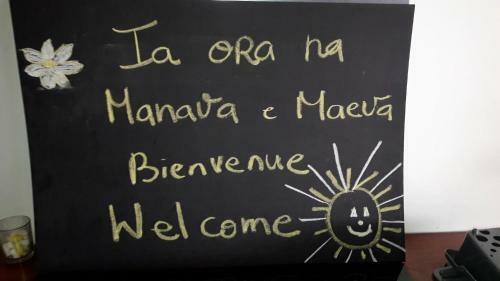 Ia ORa na
Manava e Maeva
Bienvenue
Welcome